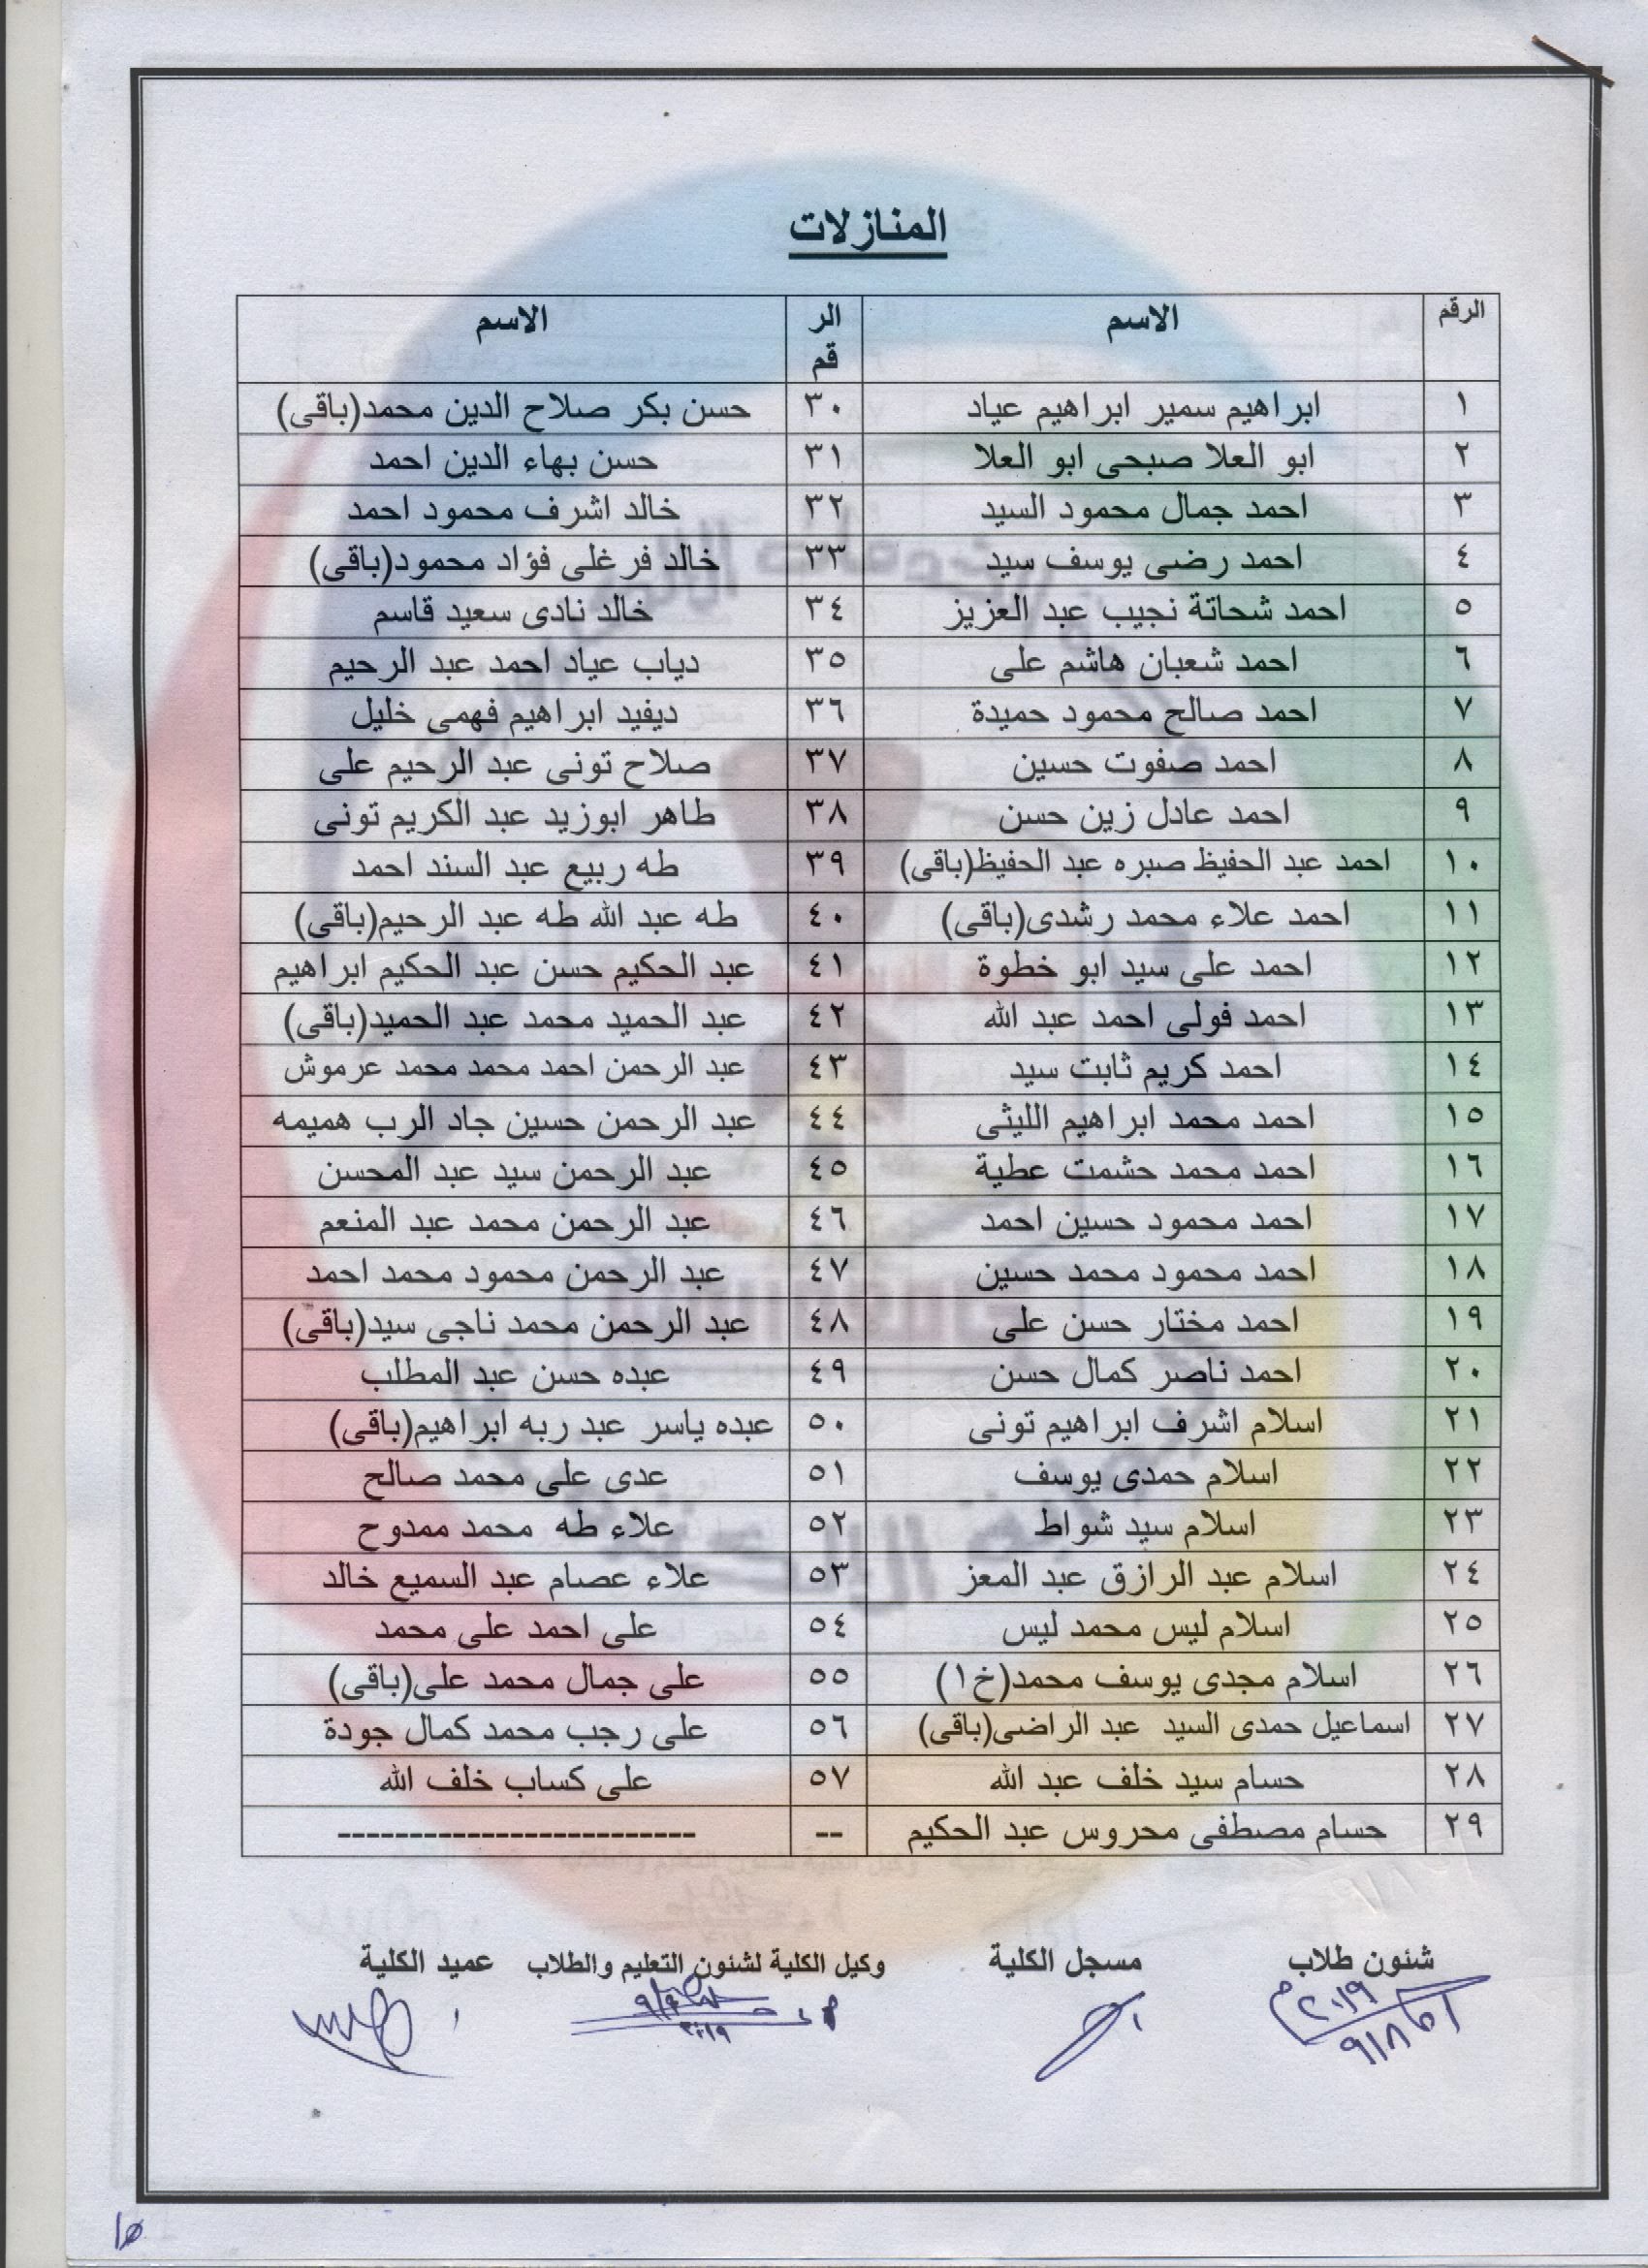 المنازلات
الرقم الاسم الرقم الاسم
١ ابراهيم سمير ابراهيم عياد ٣٠ حسن بكر صلاح الدين محمد(باقى)
٢ ابو العلا صبحى ابو العلا ٣١ حسن بهاء الدين احمد
٣ احمد جمال محمود السيد ٣٢ خالد اشرف محمود احمد
٤ احمد رضى يوسف سيد ٣٣ خالد فرغلى فؤاد محمود(باقى)
٥ احمد شحاتة نجيب عبد العزيز ٣٤ خالد نادى سعيد قاسم
٦ احمد شعبان هاشم على ٣٥ دياب عياد احمد عبد الرحيم
٧ احمد صالح محمود حميدة ٣٦ ديفيد ابراهيم فهمى خليل
٨ احمد صفوت حسين ٣٧ صلاح تونى عبد الرحيم على
٩ احمد عادل زين حسن ٣٨ طاهر ابوزيد عبد الكريم تونى
١٠ احمد عبد الحفيظ صبره عبد الحفيظ(باقى) ٣٩ طه ربيع عبد السند احمد
١١ احمد علاء محمد رشدى(باقى) ٤٠ طه عبد الله طه عبد الرحيم(باقى)
١٢ احمد على سيد ابو خطوة ٤١ عبد الحكيم حسن عبد الحكيم ابراهيم
١٣ احمد فولى احمد عبد الله ٤٢ عبد الحميد محمد عبد الحميد(باقى)
١٤ احمد كريم ثابت سيد ٤٣ عبد الرحمن احمد محمد محمد عرموش
١٥ احمد محمد ابراهيم الليثى ٤٤ عبد الرحمن حسين جاد الرب هميمه
١٦ احمد محمد حشمت عطية ٤٥ عبد الرحمن سيد عبد المحسن
١٧ احمد محمود حسين احمد ٤٦ عبد الرحمن محمد عبد المنعم
١٨ احمد محمود محمد حسين ٤٧ عبد الرحمن محمود محمد احمد
١٩ احمد مختار حسن على ٤٨ عبد الرحمن محمد ناجى سيد(باقى)
٢٠ احمد ناصر كمال حسن ٤٩ عبده حسن عبد المطلب
٢١ اسلام اشرف ابراهيم تونى ٥٠ عبده ياسر عبد ربه ابراهيم(باقى)
٢٢ اسلام حمدى يوسف ٥١ عدى على محمد صالح
٢٣ اسلام سيد شواط ٥٢ علاء طه محمد ممدوح
٢٤ اسلام عبد الرازق عبد المعز ٥٣ علاء عصام عبد السميع خالد
٢٥ اسلام ليس محمد ليس ٥٤ على احمد على محمد
٢٦ اسلام مجدى يوسف محمد(خ١) ٥٥ على جمال محمد على(باقى)
٢٧ اسماعيل حمدى السيد عبد الراضى(باقى) ٥٦ على رجب محمد كمال جودة
٢٨ حسام سيد خلف عبد الله ٥٧ على كساب خلف الله
٢٩ حسام مصطفى محروس عبد الحكيم -- -------------------------
شئون طلاب مسجل الكلية وكيل الكلية لشئون التعليم والطلاب عميد الكلية